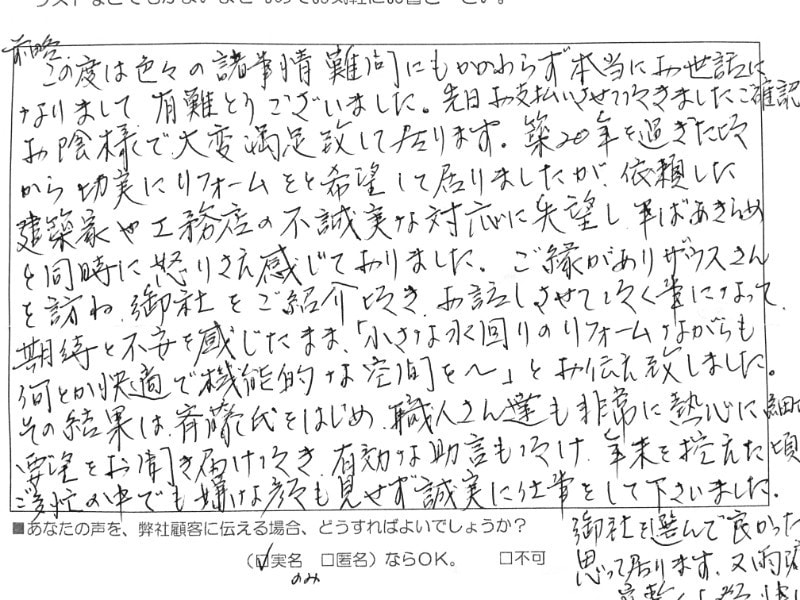 前略
この度は色々の諸事情難問にもかかわらず本当にお世話に
なりまして、有難とうございました。先日お支払いさせて頂きましたご確認
お陰様で大変満足致して居ります。築20年を過ぎた頃
から切実にリフォームをと希望して居りましたが、依頼した
建築家や工務店の不誠実な対応に失望し半ばあきらめ
と同時に怒りさえ感じておりました。ご縁がありザウスさん
を訪ね、御社をご紹介頂き、お話しさせて頂く事によって、
期待と不安を感じたまま、「小さな水回りのリフォームながらも
何とか快適で機能的な空間を～」とお伝え致しました。
その結果は、斉藤氏をはじめ、職人さん達も非常に熱心に細
要望をお聞き届け頂き、有効な助言も頂け、年末を控えた頃
ご多忙の中でも嫌な顔も見せず誠実に仕事をして下さいました。
■あなたの声を、弊社顧客に伝える場合、どうすればよいでしょうか？
（☑実名　□匿名）ならOK。　□不可
のみ
御社を選んで良かった
思って居ります。又